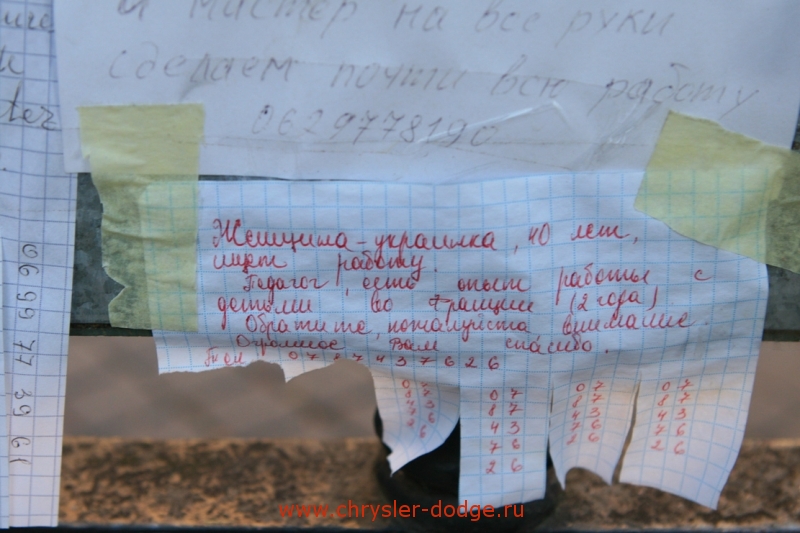 и мастер на все руки
сделаем почти всю работу
0629778190
Женщина-украинка, 40 лет,
ищет работу.
Педагог, есть опыт работы с
детьми во Франции (2 года)
Обратите, пожалуйста внимание.
Огромное Вам спасибо.
07 87 43 76 26
06 99 77 39 61
07
87
43
76
26
07
87
43
76
26
07
87
43
76
26
07
87
43
76
26
www.chrysler-dodge.ru